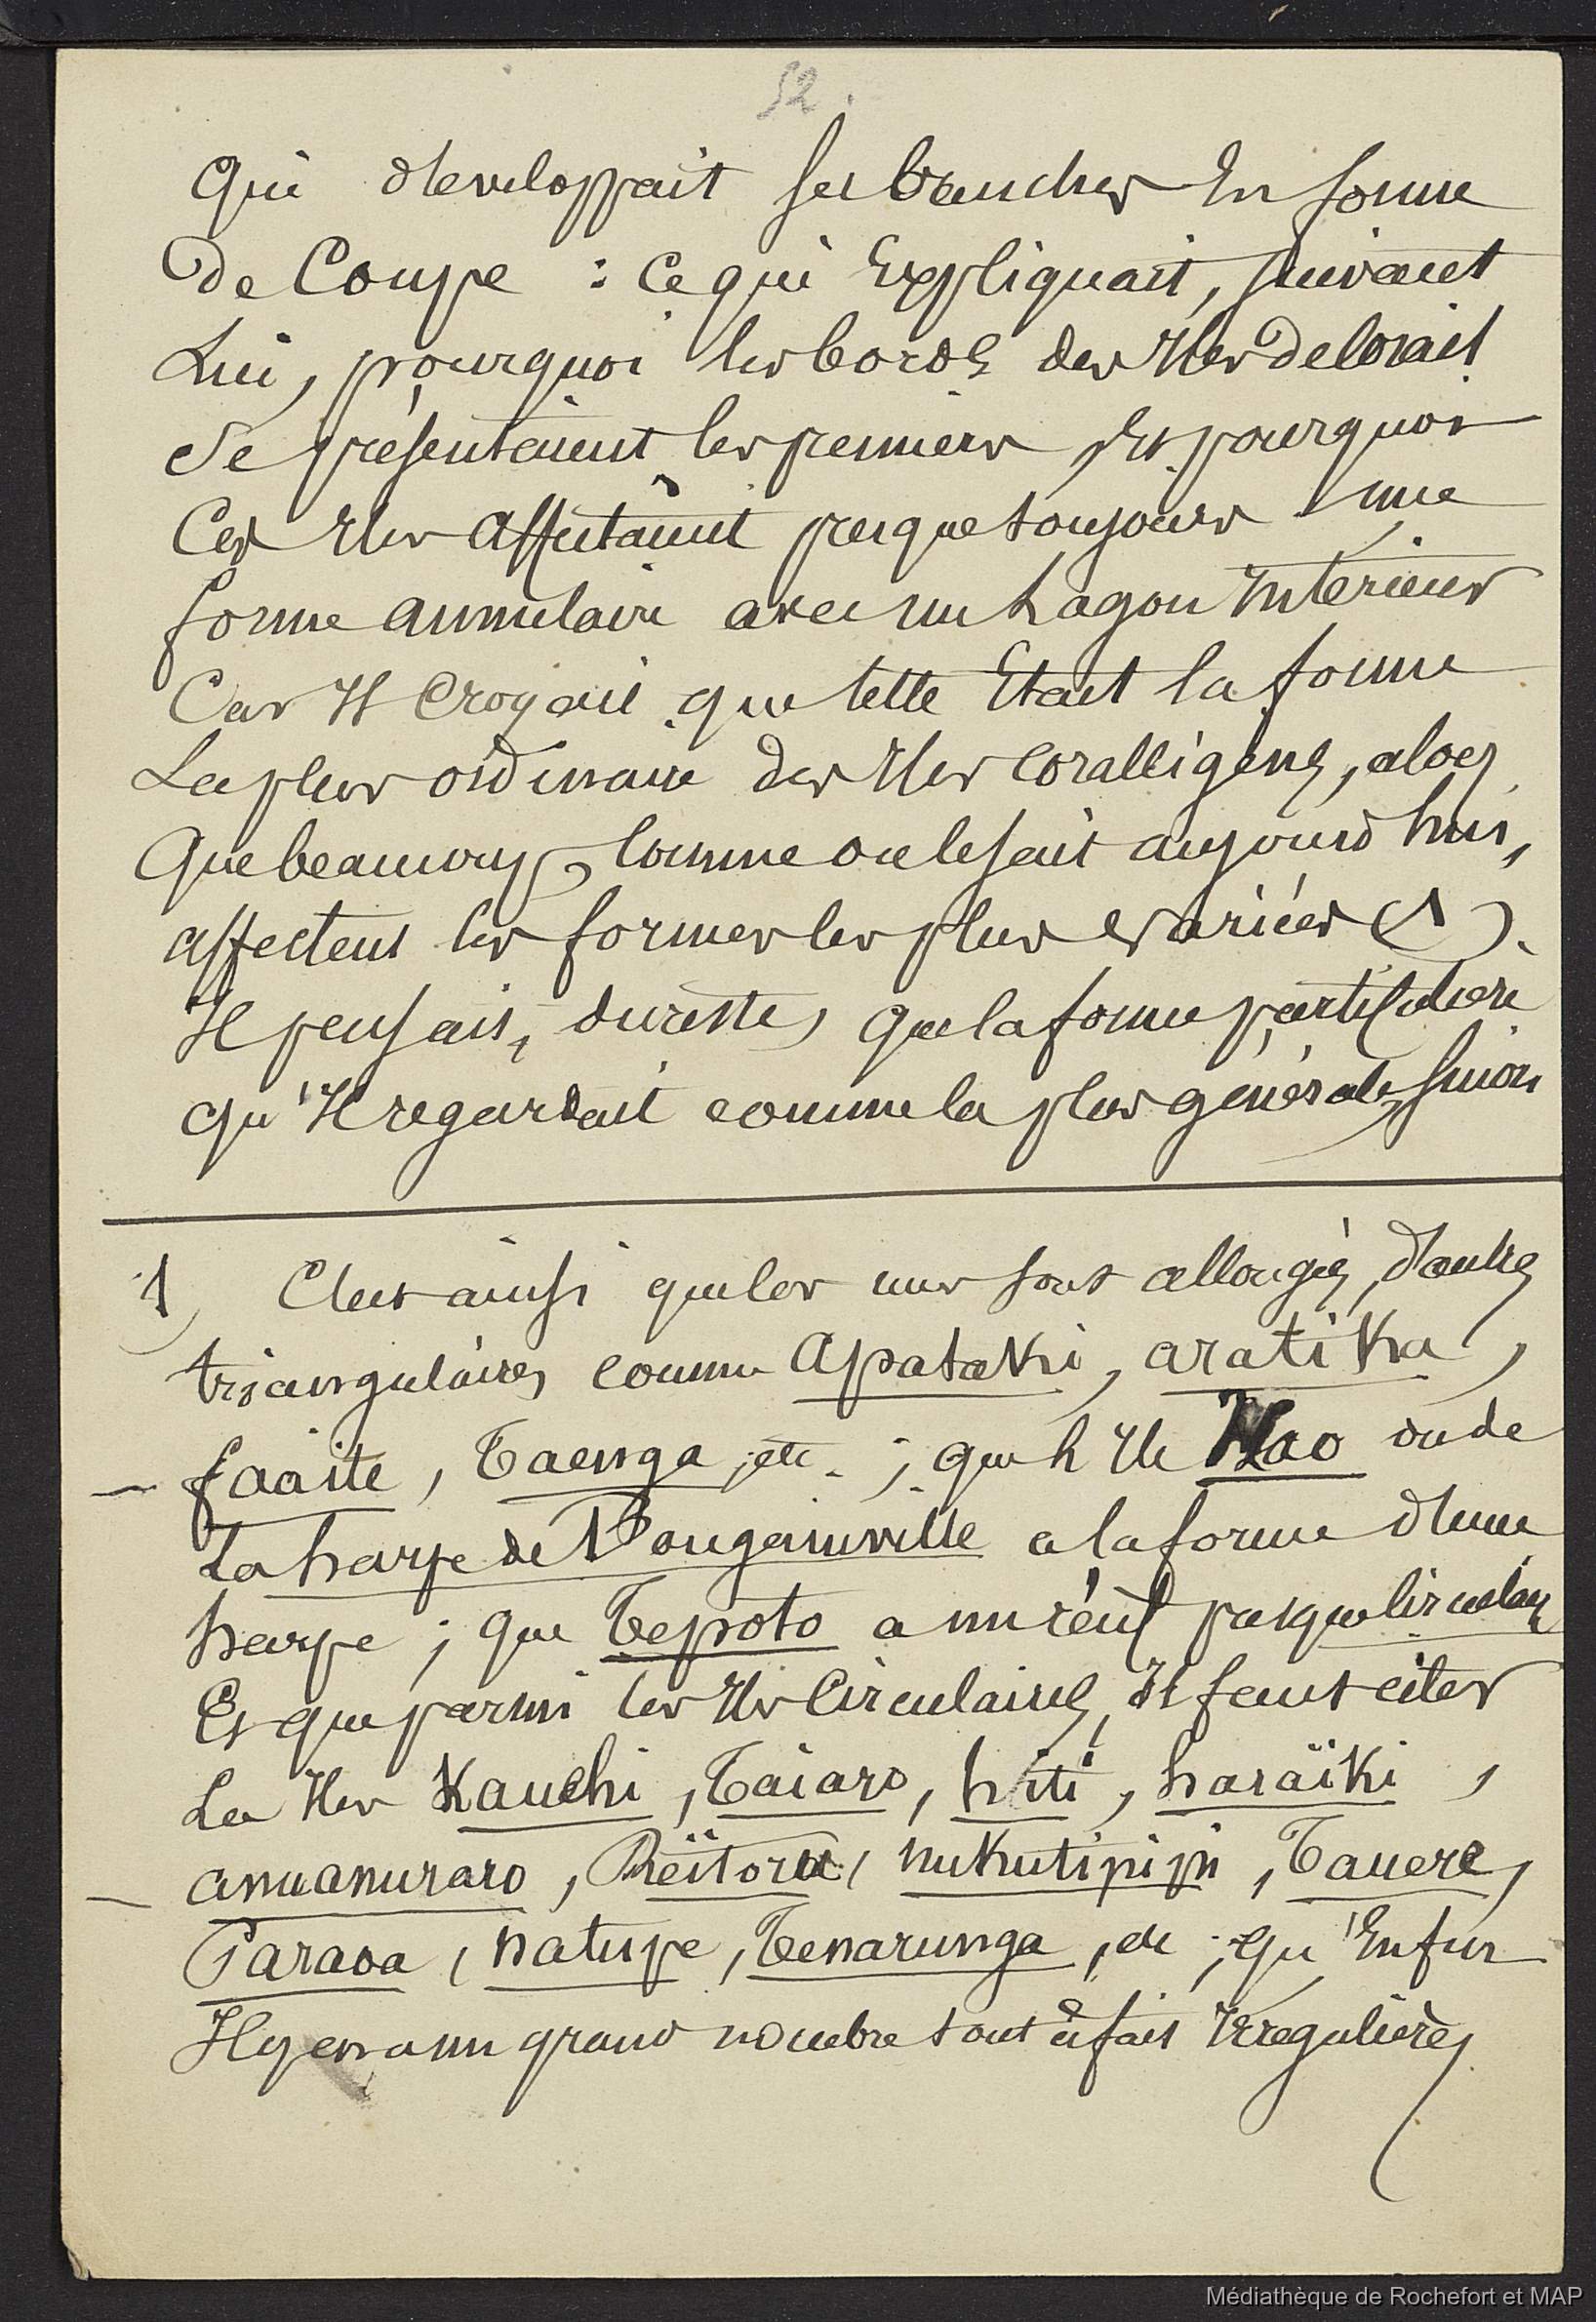 52.
qui developpait ses branches En forme
De Coupe : Ce qui Expliquait, suivant
Lui, pourquoi les bords des Iles De Corail
Se présentaient les premiers Et pourquoi
Ces Iles Affectaient presque toujours une
forme annulaire avec un Lagon Intérieur
Car Il Croyait que telle Etait la forme
La plus ordinaire des Iles Coralligènes, alors
Que beaucoup, Comme on le sait aujourd'hui,
affectent les formes les plus Variées (1).
Il pensait, du reste, que la forme particulière
qu'Il regardait comme la plus générale, sinon
1) C'est ainsi que les unes sont allongées, d'autres
triangulaires comme Apataki, aratika,
faaite, Taenga, etc. ; que l'Ile Hao ou de
La harpe de Bougainville a la forme d'une
harpe ; que Tepoto a un récif presque Circulaire
Et que parmi les Iles Circulaires, Il faut citer
Les Iles Kauehi, Taiaro, hiti, haraïki,
anuanuraro, Rëitoru, nukutipipi, Tauere,
Paraoa, natupe, Tenarunga, etc ; qu'Enfin
Il y en a un grand nombre tout à fait Irrégulières
Médiathèque de Rochefort et MAP